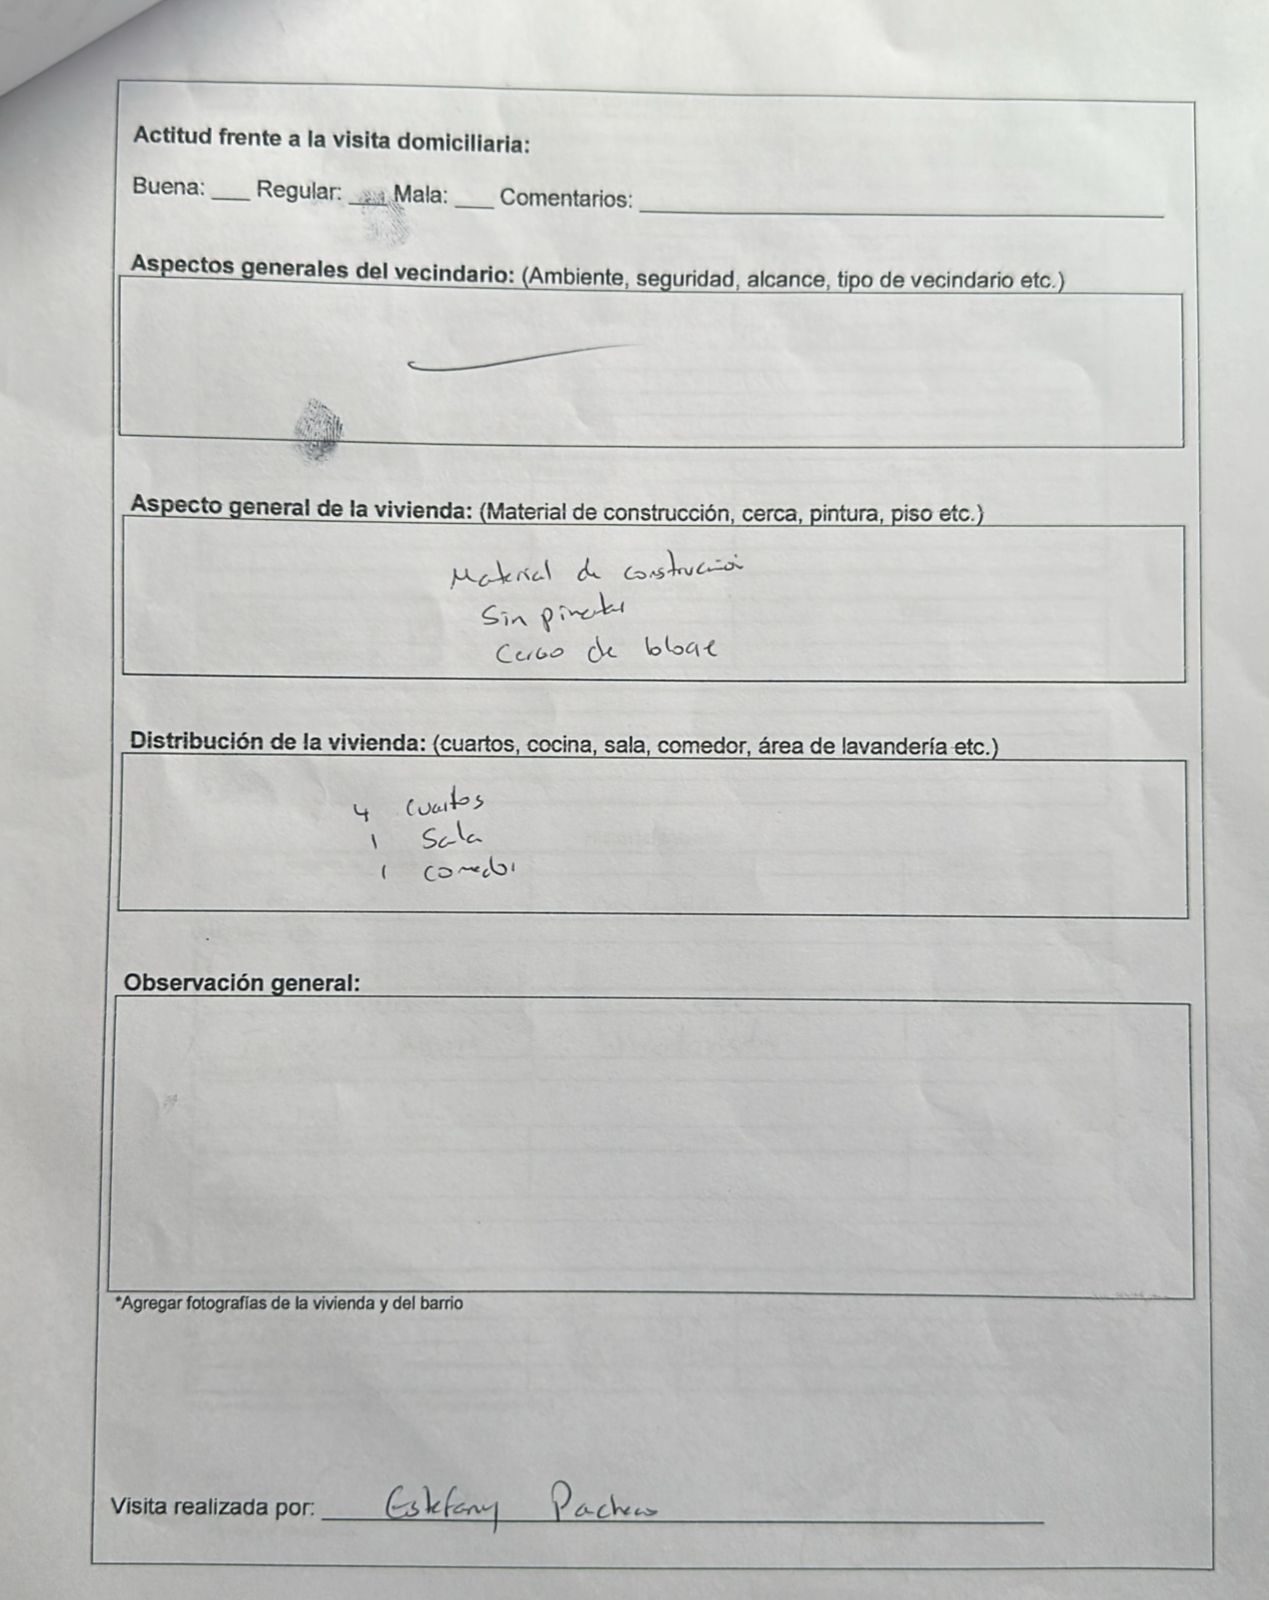 Actitud frente a la visita domiciliaria:
Buena: ___ Regular: ___ Mala: ___ Comentarios: ___
Aspectos generales del vecindario: (Ambiente, seguridad, alcance, tipo de vecindario etc.)
Aspecto general de la vivienda: (Material de construcción, cerca, pintura, piso etc.)
Material de construcción
Sin
de bloque
Distribución de la vivienda: (cuartos, cocina, sala, comedor, área de lavandería etc.)
4 cuartos
1 Sala
1 comedor
Observación general:
*Agregar fotografías de la vivienda y del barrio
Visita realizada por: Estefany Pacheco